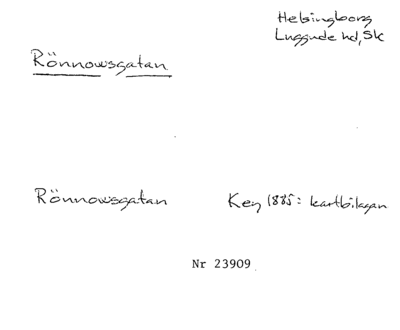 Helsingborg
Luggude hd, Sk
Rönnowsgatan
Rönnowsgatan Key 1885: kartbilagan
Nr 23909